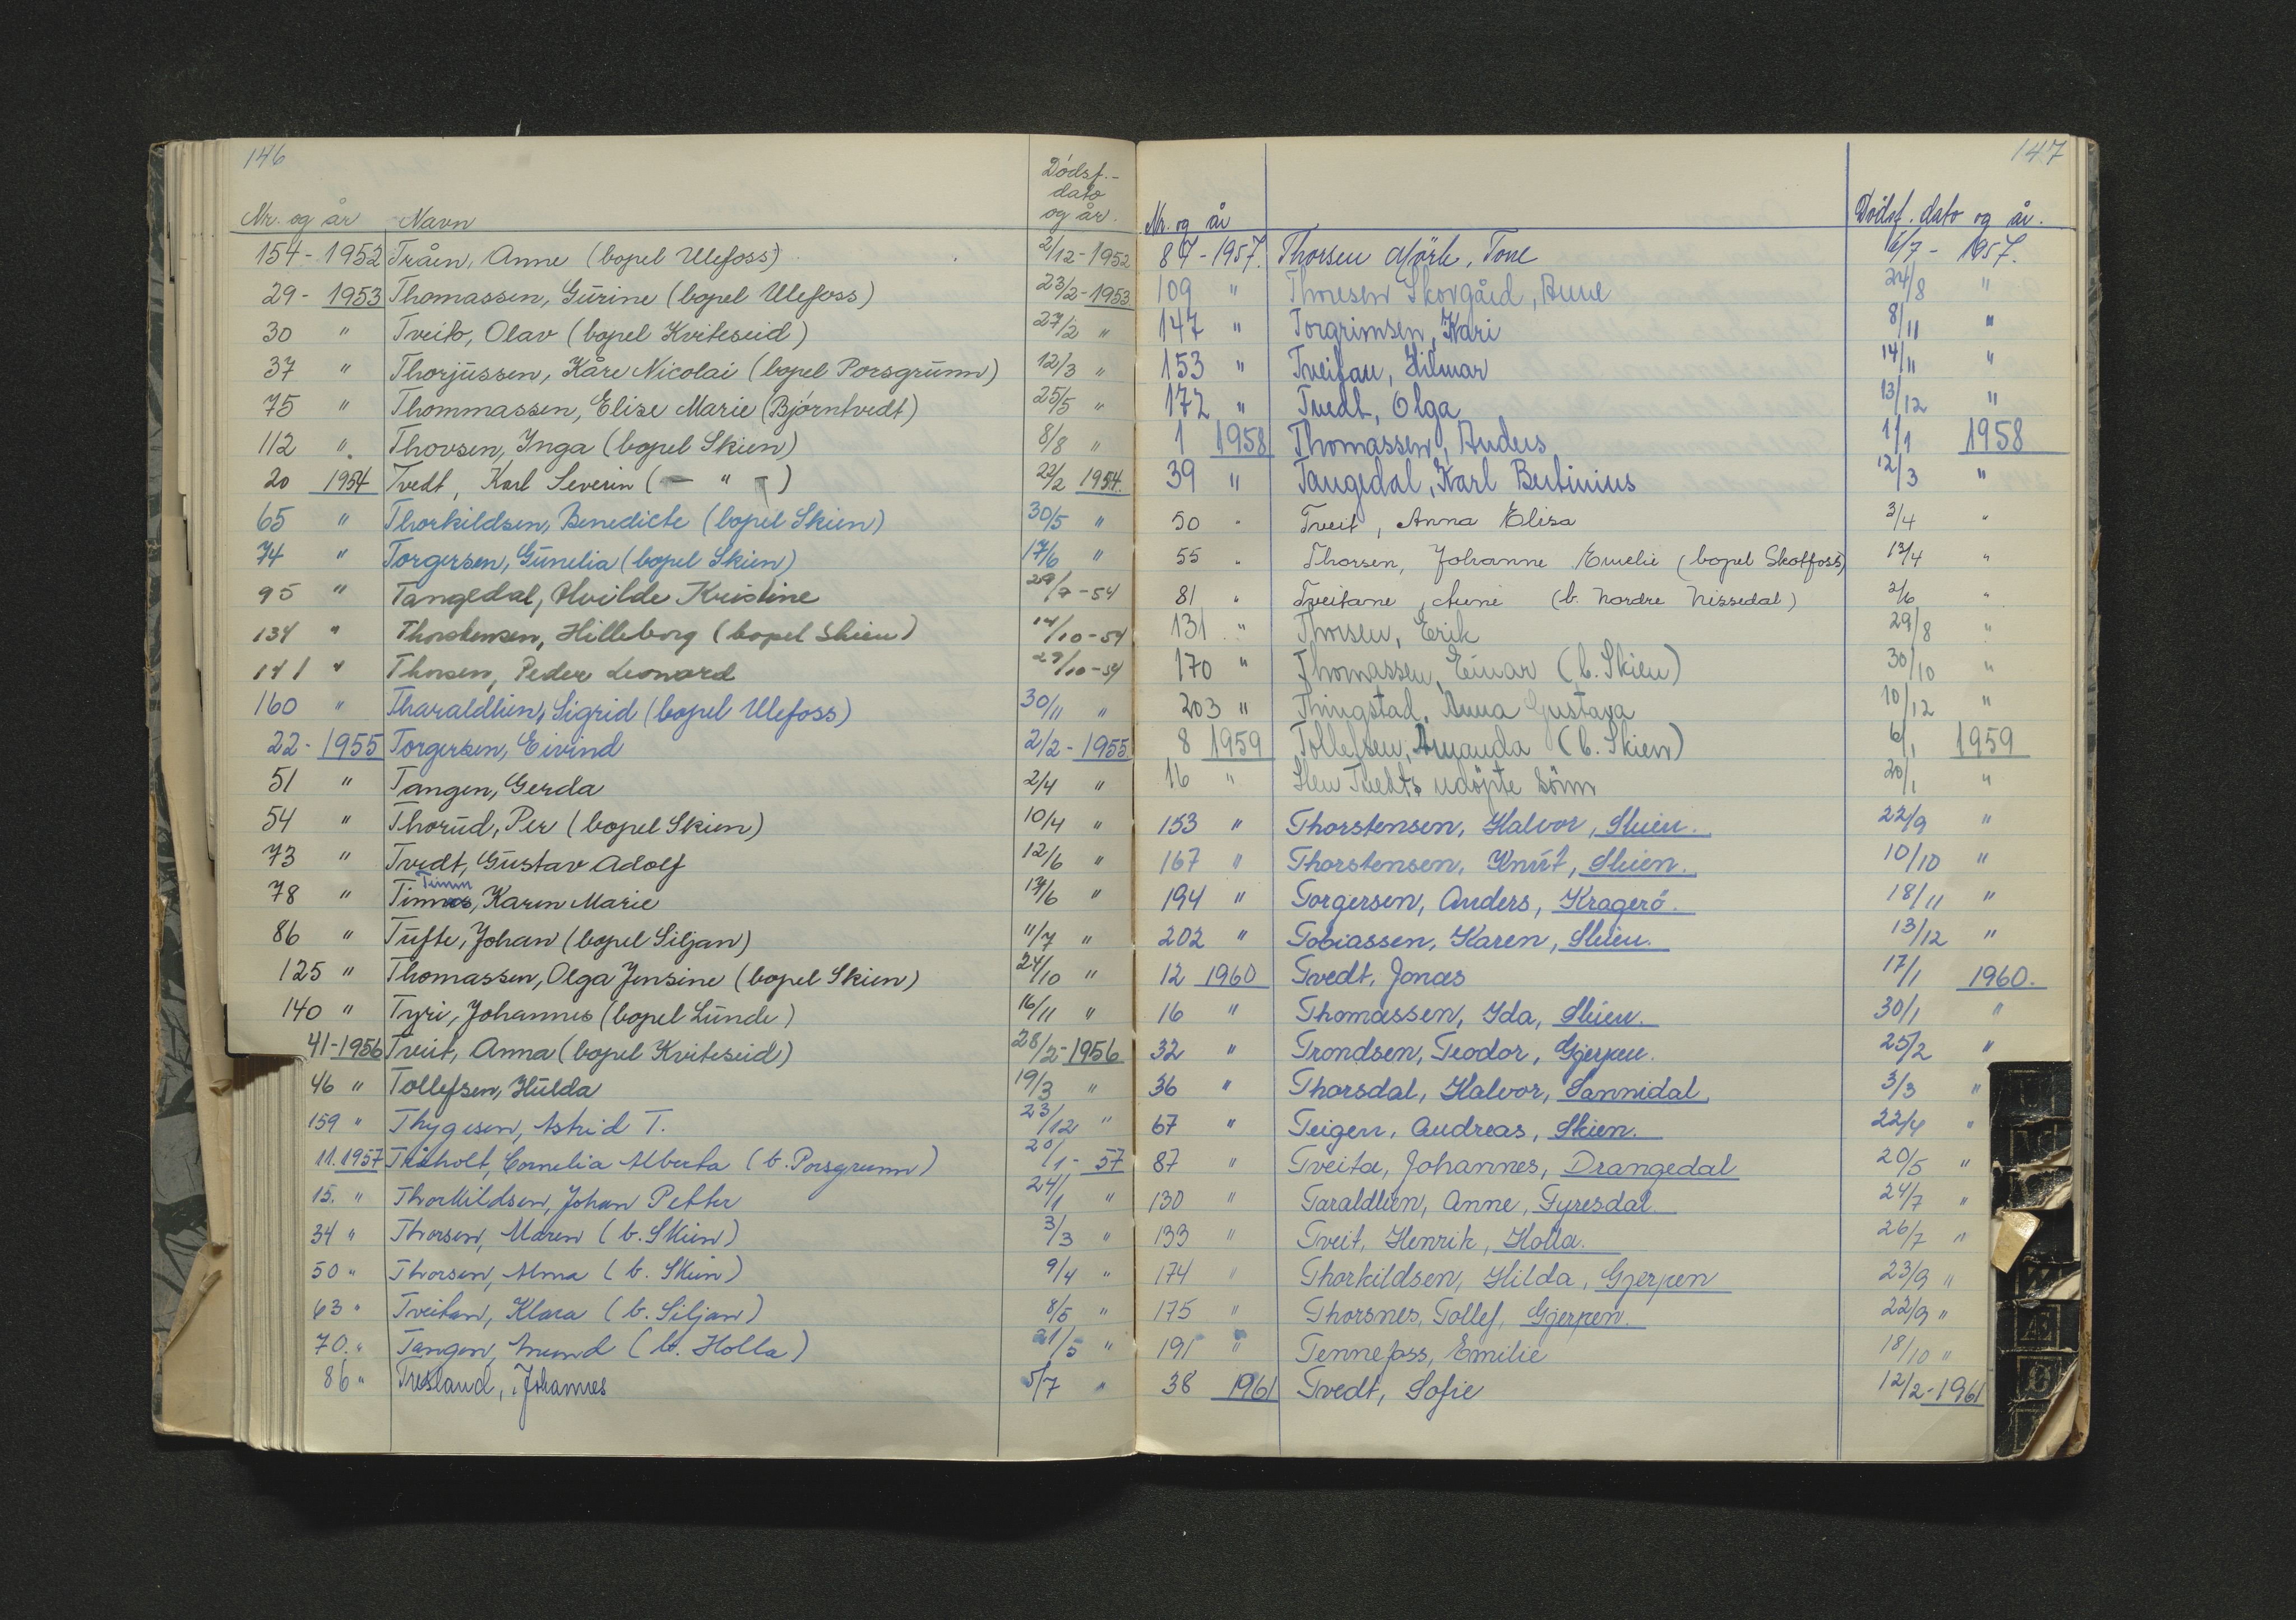 146
Dödsf.-
dato
og år.
Nr. og år Navn
154 - 1952 Tråen, Anne (bopel Ulefoss) 2/12 - 1952
29 - 1953 Thomassen, Gurine (bopel Ulefoss) 23/2 - 1953
30 " Tveito, Olav (bopel Kviteseid) 27/2 "
37 " Thorjussen, Kåre Nicolai (bopel Porsgrunn) 12/3 "
75 " Thommassen, Elise Marie (Bjørntvedt) 25/5 "
112 " Thovsen, Ynga (bopel Skien) 8/8 "
20 1954 Tvedt, Karl Severin ( — " — ) 22/2 1954.
65 " Thorkildsen, Benedicte (bopel Skien) 30/5 "
74 " Torgersen, Gunelia (bopel Skien) 17/6 "
95 " Tangedal, Alvilde Kristine 29/7 - 54
134 " Thorstensen, Hilleborg (bopel Skien) 14/10 - 54
141 " Thorsen, Peder Leonard 29/10 - 54
160 " Tharaldlien, Sigrid (bopel Ulefoss) 30/11 "
22 - 1955 Torgersen, Eivind 2/2 - 1955
51 " Tangen, Gerda 2/4 "
54 " Thorud, Per (bopel Skien) 10/4 "
73 " Tvedt, Gustav Adolf 12/6 "
Timm
78 " , Karen Marie 17/6 "
86 " Tufte, Johan (bopel Siljan) 11/7 "
125 " Thomassen, Olga Jensine (bopel Skien) 24/10 "
140 " Tyri, Johannes (bopel Lunde) 16/11 "
41 - 1956 Tveit, Anna (bopel Kviteseid) 28/2 - 1956
46 " Tollefsen, Hulda 19/3 "
159 " Thygesen, Astrid T. 23/12 "
11. 1957 Tråholt, Cornelia Alberta (b. Porsgrunn) 20/1 - 57
15. " Thorkildsen, Johan Petter 24/1 "
34 " Thorsen, Maren (b. Skien) 3/3 "
50 " Thorsen, Alma (b. Skien) 9/4 "
63 " Tveitan, Klara (b. Siljan) 8/5 "
70. " Tangen, Amund (b. Holla) 21/5 "
86 " Tresland, Johannes 5/7 "
147
Nr. og år Dödsf. dato og år.
87 - 1957. Thorsen Mörk, Tone 6/7 - 1957.
109 " Thoresen Skovgård, Anne 24/8 "
147 " Torgrimsen, Kari 8/11 "
153 " Tveitau, Hilmar 14/11 "
172 " Tvedt, Olga 13/12 "
1 1958 Thomassen, Anders 1/1 1958
39 " Tangedal, Karl Bertinius 12/3 "
50 " Tveit, Anna Elisa 3/4 "
55 " Thorsen, Johanne Emelie (bopel Skotfoss) 13/4 "
81 " Tveitane, Aune (b. Nordre Nissedal) 2/6 "
131 " Thorsen, Erik 29/8 "
170 " Thomassen, Einar (b. Skien) 30/10 "
203 " Thingstad, Anna Gustava 10/12 "
8 1959 Tollefsen, Amanda (b. Skien) 6/1 1959
16 " Tvedts udöpte sönn 20/1 "
153 " Thorstensen, Halvor, Skien. 22/9 "
167 " Thorstensen, Knut, Skien. 10/10 "
194 " Torgersen, Anders, Kragerö. 18/11 "
202 " Tobiassen, Karen, Skien. 13/12 "
12 1960 Tvedt, Jonas 17/1 1960.
16 " Thomassen, Ida, Skien. 30/1 "
32 " Trondsen, Teodor, Gjerpen. 25/2 "
36 " Thorsdal, Halvor, Sannidal, 3/3 "
67 " Teigen, Andreas, Skien. 22/4 "
87 " Tveita, Johannes, Drangedal 20/5 "
130 " Taraldlien, Anne, Fyresdal. 24/7 "
133 " Tveit, Henrik, Holla. 26/7 "
174 " Thorkildsen, Hilda, Gjerpen 23/9 "
175 " Thorsnes, Tollef, Gjerpen. 22/9 "
191 " Tennefoss, Emilie 18/10 "
38 1961 Tvedt, Sofie 12/2 - 1961
Æ